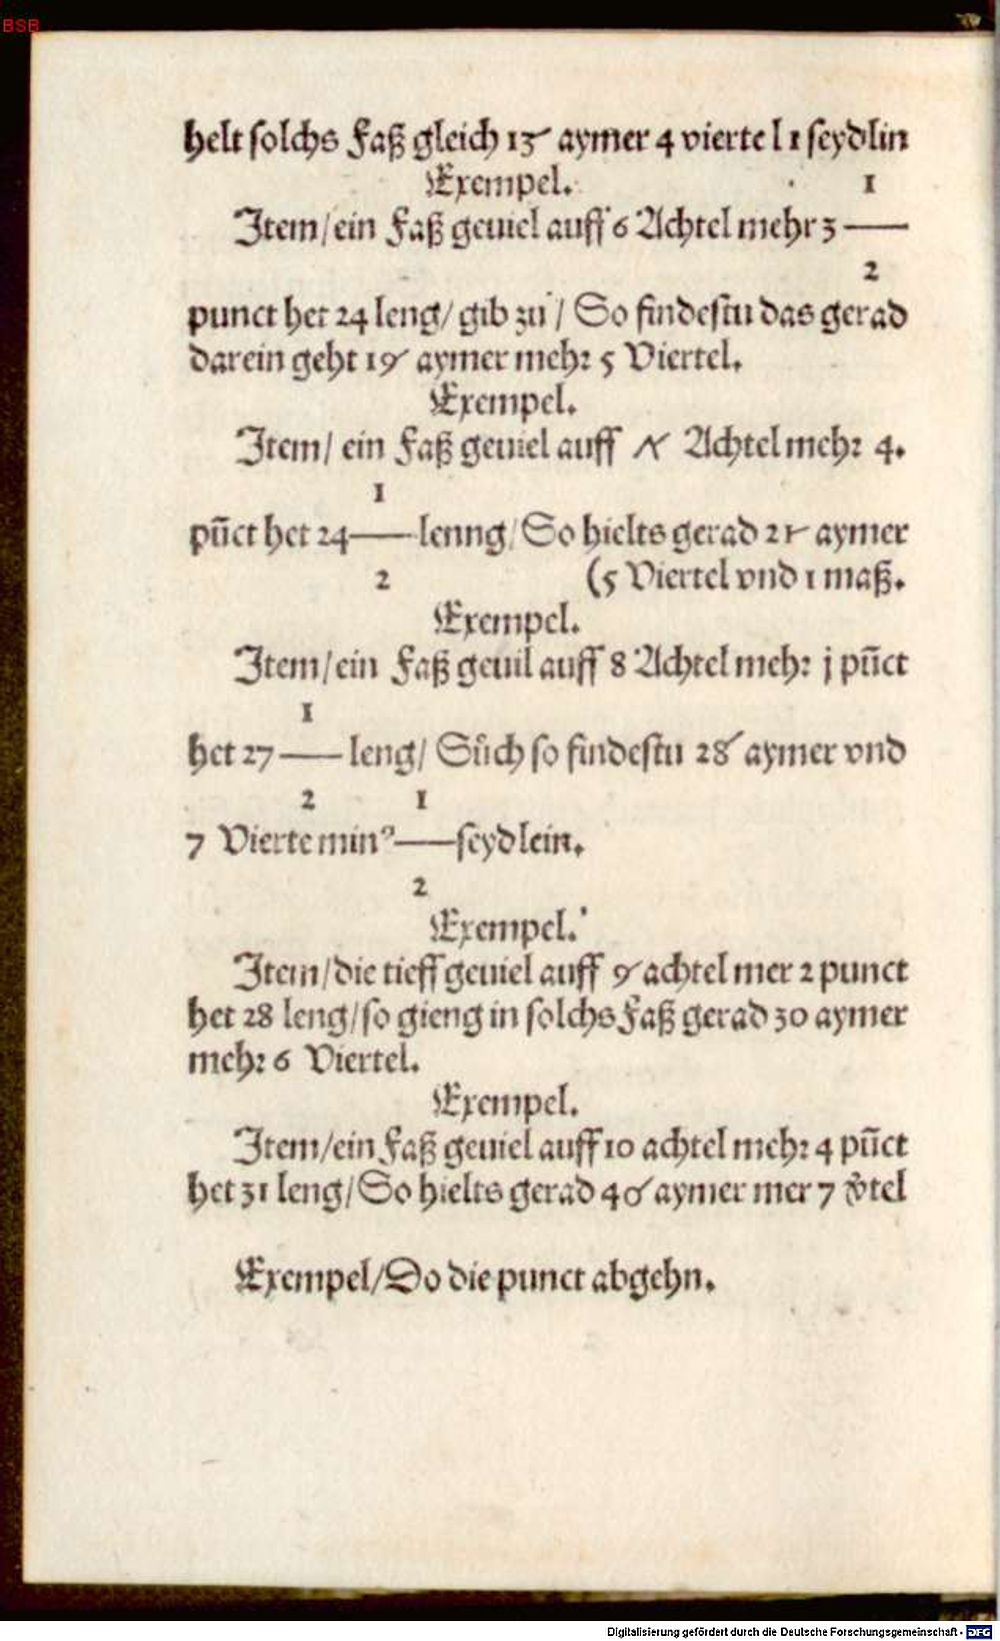 BSB
helt solchs Faß gleich 13 aymer 4 vierte l 1 seydlin
Exempel.
1
Item/ein Faß geuiel auff 6 Achtel mehr 3 —
2
punct het 24 leng/ gib zu / So findestu das gerad
darein geht 19 aymer mehr 5 Viertel.
Exempel.
Item/ ein Faß geuiel auff Achtel mehr 4.
1
pūct het 24— lenng/So hielts gerad aymer
2 (5 Viertel vnd 1 maß.
Exempel.
Item/ein Faß geuil auff 8 Achtel mehr j pūct
1
het 27 — leng/ Sůch so findestu 28 aymer vnd
2 1
7 Vierte minꝰ—seydlein.
2
Exempel.
Item/die tieff geuiel auff 9 achtel mer 2 punct
het 28 leng/so gieng in solchs Faß gerad 30 aymer
mehr 6 Viertel.
Exempel.
Item/ein Faß geuiel auff 10 achtel mehr 4 pūct
het 31 leng/So hielts gerad aymer mer 7 v̄tel
Exempel/Do die punct abgehn.
Digitalisierung gefördert durch die Deutsche Forschungsgemeinschaft - DFG